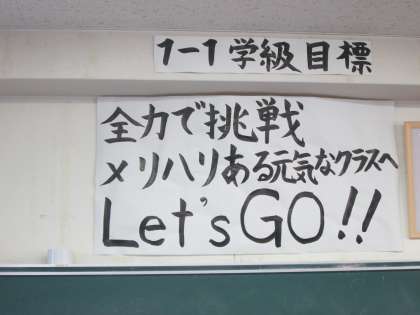 1-1学級目標
全力で挑戦
メリハリある元気なクラスへ
Let's GO!!